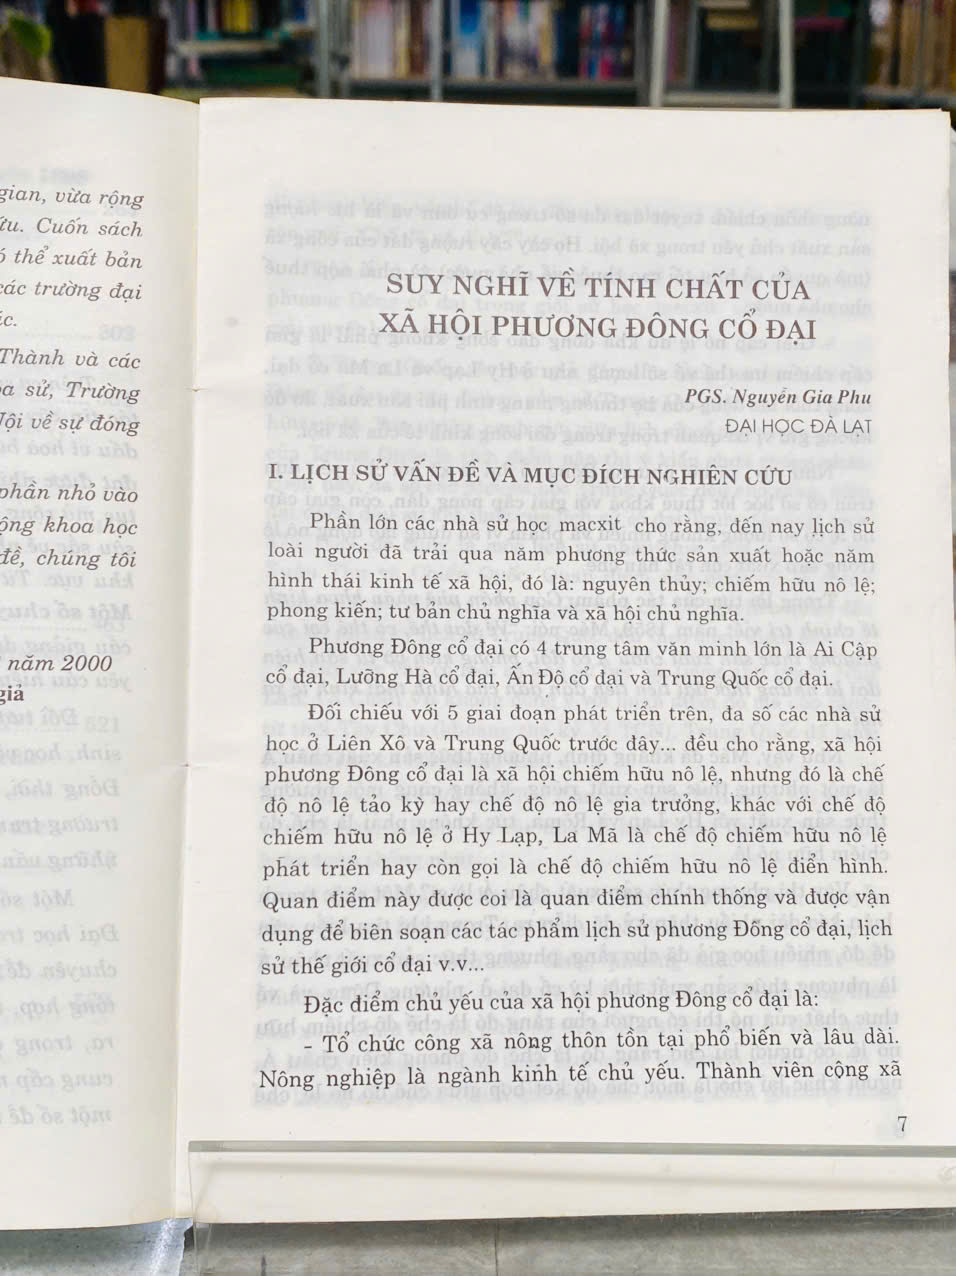 gian, vừa rộng
Cuốn sách
thể xuất bản
các trường đại
Thành và các
sử, Trường
Nội về sự đóng
phần nhỏ vào
khoa học
đề, chúng tôi
năm 2000
giả
SUY NGHĨ VỀ TÍNH CHẤT CỦA
XÃ HỘI PHƯƠNG ĐÔNG CỔ ĐẠI
PGS. Nguyễn Gia Phu
ĐẠI HỌC ĐÀ LẠT
I. LỊCH SỬ VẤN ĐỀ VÀ MỤC ĐÍCH NGHIÊN CỨU
Phần lớn các nhà sử học macxit cho rằng, đến nay lịch sử
loài người đã trải qua năm phương thức sản xuất hoặc năm
hình thái kinh tế xã hội, đó là: nguyên thủy; chiếm hữu nô lệ;
phong kiến; tư bản chủ nghĩa và xã hội chủ nghĩa.
Phương Đông cổ đại có 4 trung tâm văn minh lớn là Ai Cập
cổ đại, Lưỡng Hà cổ đại, Ấn Độ cổ đại và Trung Quốc cổ đại.
Đối chiếu với 5 giai đoạn phát triển trên, đa số các nhà sử
học ở Liên Xô và Trung Quốc trước đây... đều cho rằng, xã hội
phương Đông cổ đại là xã hội chiếm hữu nô lệ, nhưng đó là chế
độ nô lệ tảo kỳ hay chế độ nô lệ gia trưởng, khác với chế độ
chiếm hữu nô lệ ở Hy Lạp, La Mã là chế độ chiếm hữu nô lệ
phát triển hay còn gọi là chế độ chiếm hữu nô lệ điển hình.
Quan điểm này được coi là quan điểm chính thống và được vận
dụng để biên soạn các tác phẩm lịch sử phương Đông cổ đại, lịch
sử thế giới cổ đại v.v...
Đặc điểm chủ yếu của xã hội phương Đông cổ đại là:
- Tổ chức công xã nông thôn tồn tại phổ biến và lâu dài.
Nông nghiệp là ngành kinh tế chủ yếu. Thành viên cộng xã
7